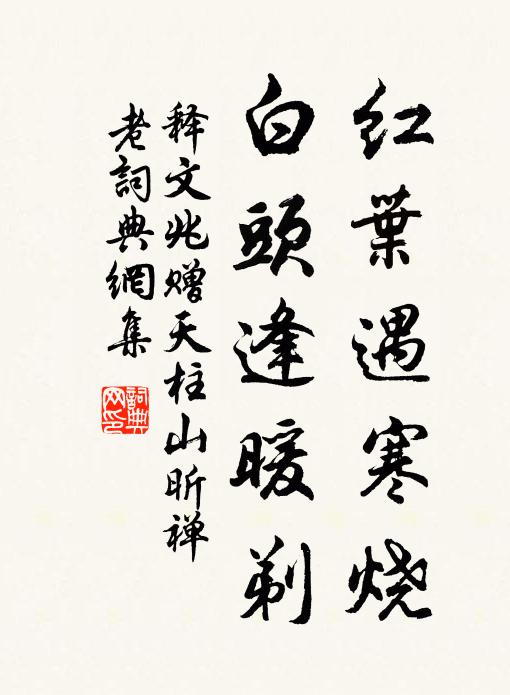 红葉遇寒烧
白頭逢暖剃
释文兆赠天柱山昕禅
老詞典網集
詞典网印